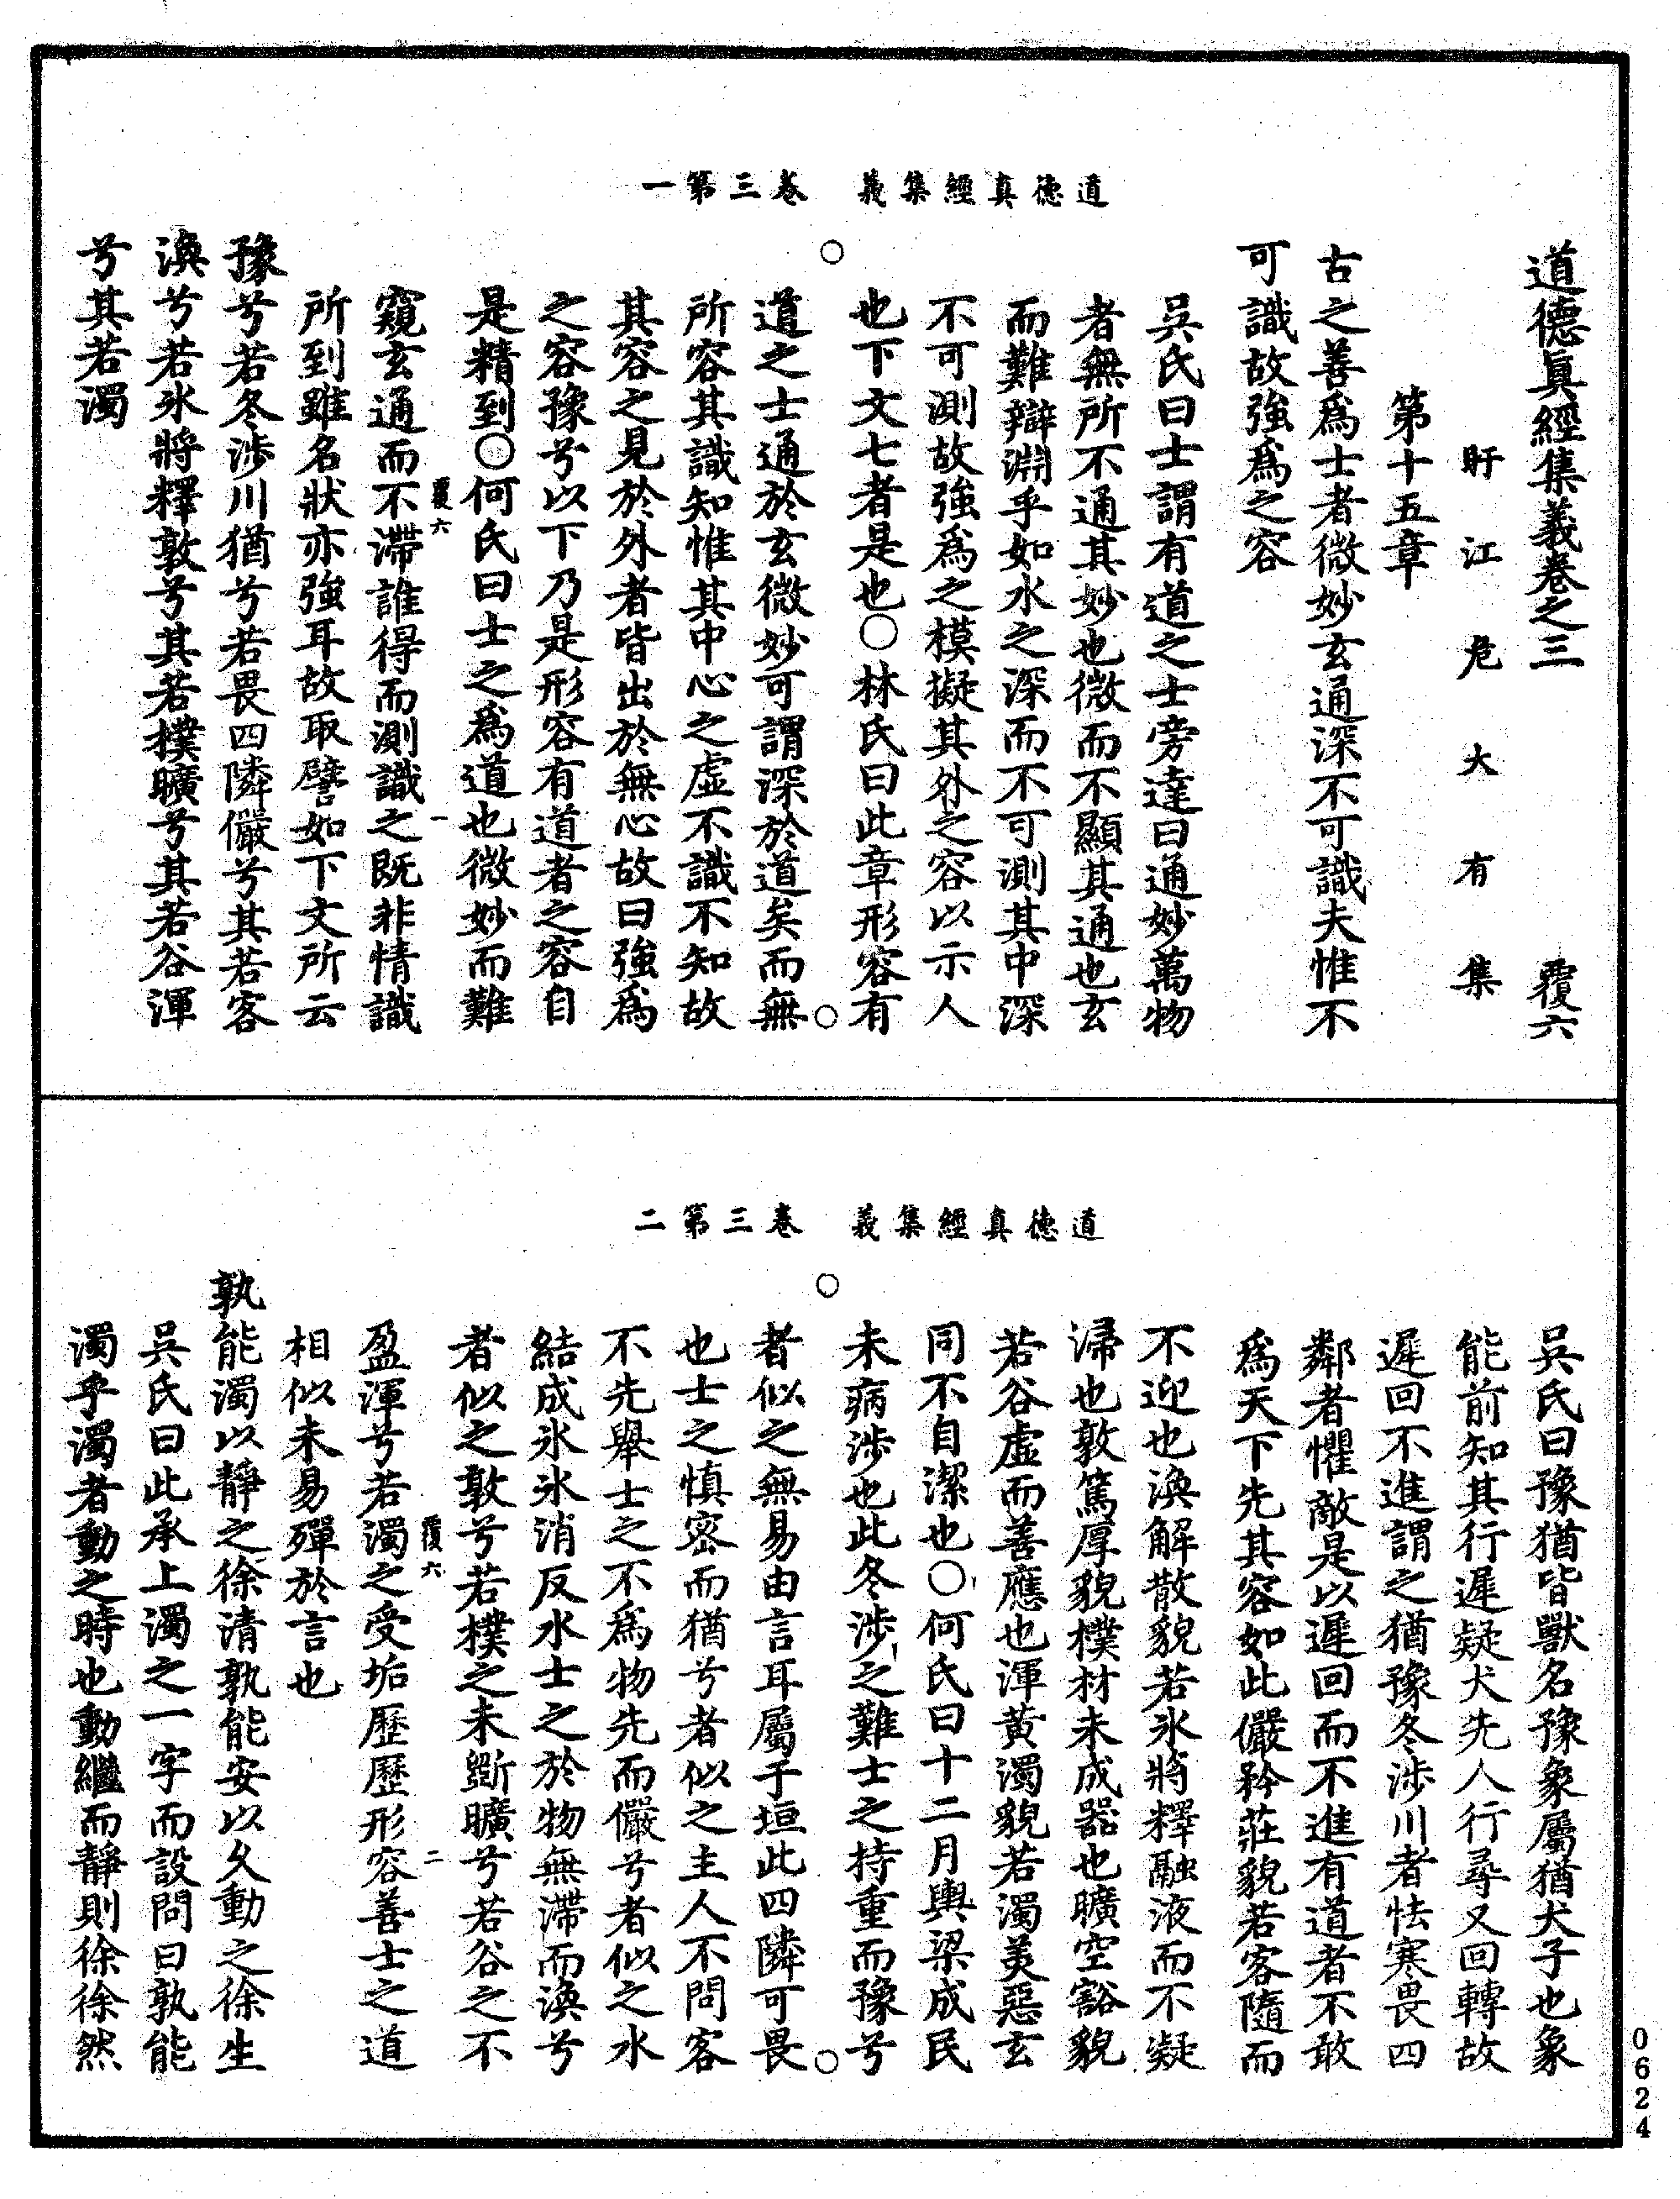 道德真經集義 卷三第一
道德眞經集義卷之三 覆六
盱江危大有集
第十五章
古之善爲士者微妙玄通深不可識夫惟不
可識故強爲之容
吳氏曰士謂有道之士旁達曰通妙萬物
者無所不通其妙也微而不顯其通也玄
而難辯淵乎如水之深而不可測其中深
不可測故強爲之模擬其外之容以示人
也下文七者是也○林氏曰此章形容有
道之士通於玄微妙可謂深於道矣而無
所容其識知惟其中心之虛不識不知故
其容之見於外者皆出於無心故曰強爲
之容豫兮以下乃是形容有道者之容自
是精到○何氏曰士之爲道也微妙而難
覆六 一
窺玄通而不滯誰得而測識之既非情識
所到雖名狀亦強耳故取譬如下文所云
豫兮若冬涉川猶兮若畏四隣儼兮其若客
渙兮若氷將釋敦兮其若樸曠兮其若谷渾
兮其若濁
道德真經集義 卷三第二
吳氏曰豫猶皆獸名豫象屬猶犬子也象
能前知其行遲疑犬先人行尋又回轉故
遲回不進謂之猶豫冬涉川者怯寒畏四
鄰者懼敵是以遲回而不進有道者不敢
爲天下先其容如此儼矜莊貌若客隨而
不迎也渙解散貌若氷將釋融液而不凝
滯也敦篤厚貌樸材未成器也曠空豁貌
若谷虛而善應也渾黄濁貌若濁美惡玄
同不自潔也○何氏曰十二月輿梁成民
未病涉也此冬涉之難士之持重而豫兮
者似之無易由言耳屬于垣此四隣可畏
也士之慎密而猶兮者似之主人不問客
不先舉士之不爲物先而儼兮者似之水
結成氷氷消反水士之於物無滯而渙兮
者似之敦兮若樸之未斲曠兮若谷之不
覆六 二
盈渾兮若濁之受垢歷歷形容善士之道
相似未易殫於言也
孰能濁以靜之徐清孰能安以久動之徐生
吳氏曰此承上濁之一字而設問曰孰能
濁乎濁者動之時也動繼而靜則徐徐然
0624